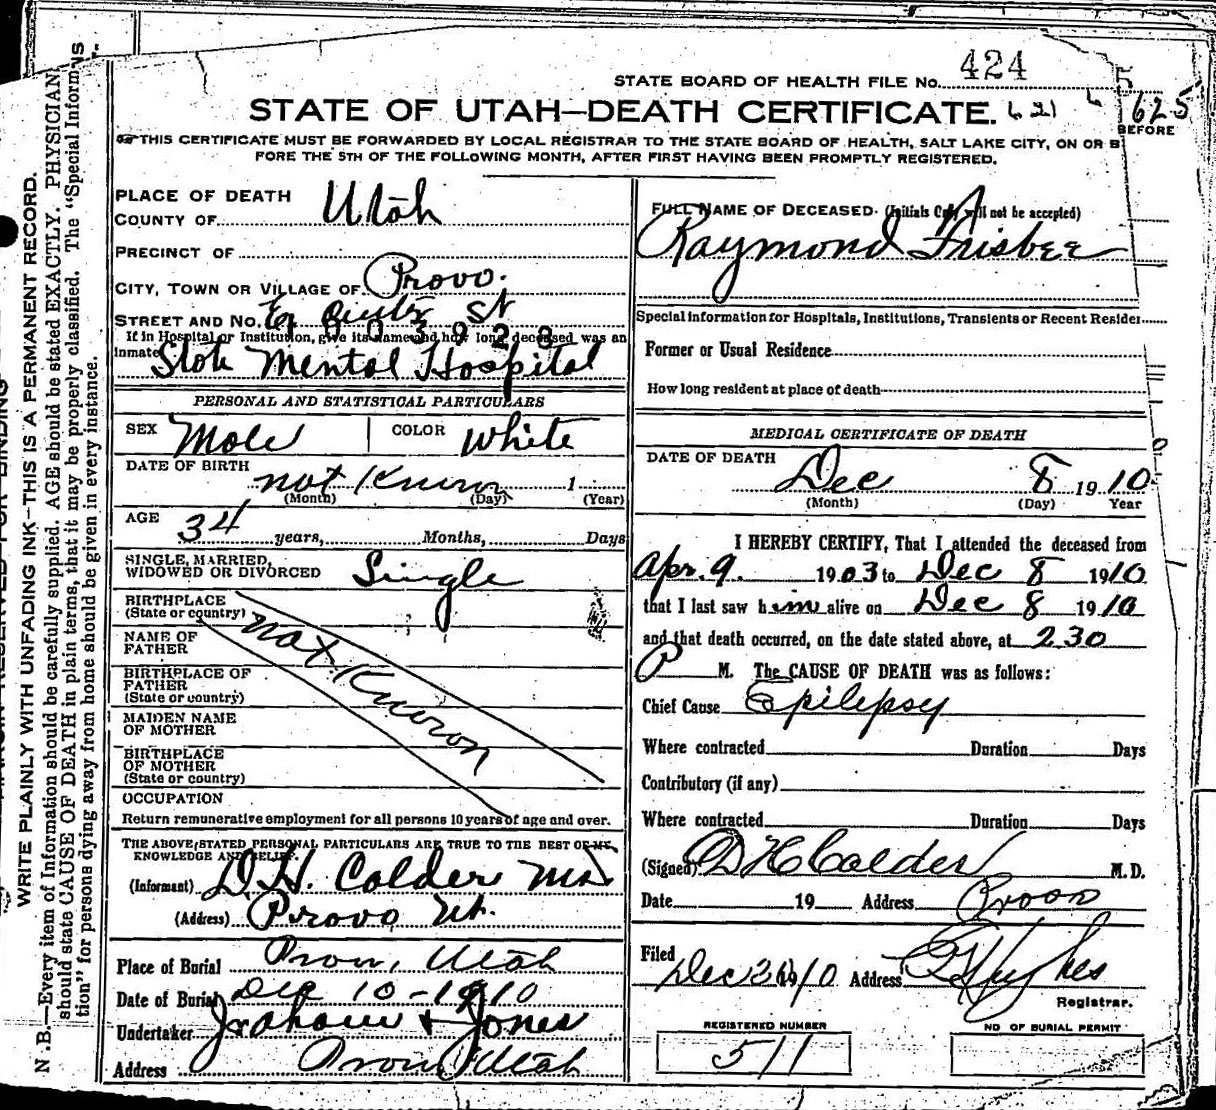 STATE BOARD OF HEALTH FILE No. 424
STATE OF UTAH—DEATH CERTIFICATE.
625
BEFORE
THIS CERTIFICATE MUST BE FORWARDED BY LOCAL REGISTRAR TO THE STATE BOARD OF HEALTH, SALT LAKE CITY, ON OR B
FORE THE 5TH OF THE FOLLOWING MONTH, AFTER FIRST HAVING BEEN PROMPTLY REGISTERED.
WRITE PLAINLY WITH UNFADING INK—THIS IS A PERMANENT RECORD.
N. B.—Every item of Information should be carefully supplied. AGE should be stated EXACTLY. PHYSICIAN
should state CAUSE OF DEATH in plain terms, that it may be properly classified. The "Special Inform
tion" for persons dying away from home should be given in every instance.
PLACE OF DEATH
COUNTY OF Utah
PRECINCT OF
CITY, TOWN OR VILLAGE OF Provo.
STREET AND No. St
If in Hospital or Institution, give its name and how long deceased was an
inmate State Mental Hospital
PERSONAL AND STATISTICAL PARTICULARS
SEX Male COLOR White
DATE OF BIRTH not Known 1
(Month) (Day) (Year)
AGE 34 years, Months, Days
SINGLE, MARRIED,
WIDOWED OR DIVORCED Single
BIRTHPLACE
(State or country)
NAME OF
FATHER
BIRTHPLACE OF
FATHER
(State or country)
not Known
MAIDEN NAME
OF MOTHER
BIRTHPLACE
OF MOTHER
(State or country)
OCCUPATION
Return remunerative employment for all persons 10 years of age and over.
THE ABOVE STATED PERSONAL PARTICULARS ARE TRUE TO THE BEST OF MY
KNOWLEDGE AND BELIEF.
(Informant) D. H. Calder MD
(Address) Provo Ut.
Place of Burial Provo, Utah
Date of Burial Dec 10-1910
Undertaker Graham & Jones
Address Provo Utah
FULL NAME OF DECEASED (Initials Only will not be accepted)
Raymond Frisbee
Special information for Hospitals, Institutions, Transients or Recent Residen
Former or Usual Residence
How long resident at place of death
MEDICAL CERTIFICATE OF DEATH
DATE OF DEATH
Dec 8 1910
(Month) (Day) Year
I HEREBY CERTIFY, That I attended the deceased from
Apr. 9. 1903 to Dec 8 1910
that I last saw him alive on Dec 8 1910
and that death occurred, on the date stated above, at 2.30
P M. The CAUSE OF DEATH was as follows:
Chief Cause Epilepsy
Where contracted Duration Days
Contributory (if any)
Where contracted Duration Days
(Signed) D H Calder M.D.
Date 19 Address Provo
Filed
Dec 1910 Address Hughes
Registrar.
REGISTERED NUMBER
511
NO OF BURIAL PERMIT